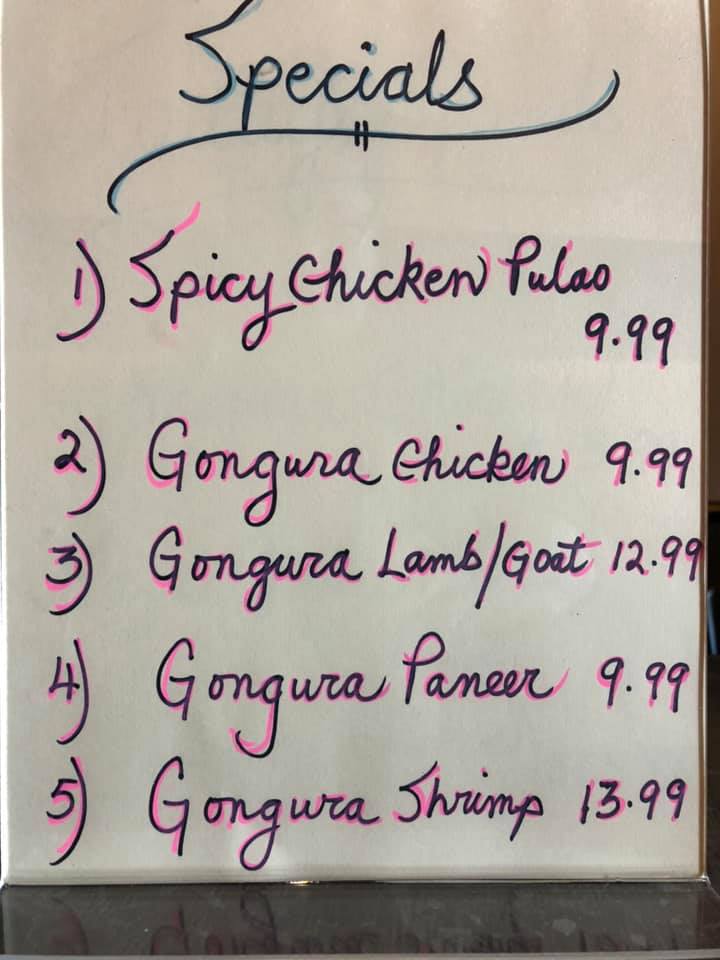 Specials
1) Spicy Chicken Pulao
9.99
2) Gongura Chicken 9.99
3) Gongura Lamb/Goat 12.99
4) Gongura Paneer 9.99
5) Gongura Shrimp 13.99